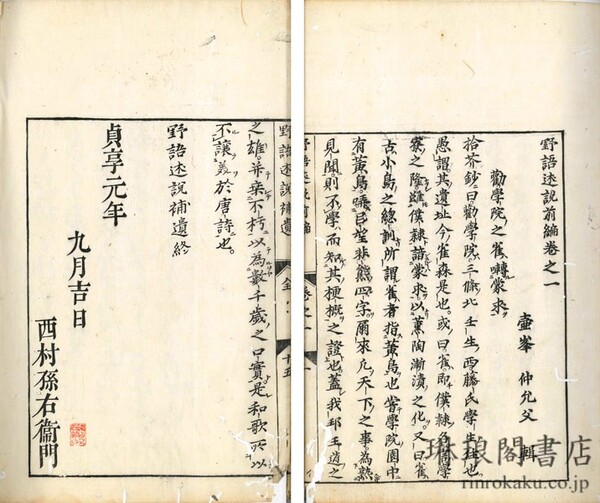 野語述説前編巻之一
壺峯 仲允父 輯
勸學院之雀囀蒙求
拾芥鈔曰勸學院三條北壬生西藤氏學生住也
愚謂其遺址今雀森是也或曰雀即僕隷為學
寮之雖僕隷諳蒙求以薫陶漸漬之化又曰雀
古小鳥之總訓所謂雀者指黄鳥也學院園中
有黄鳥囀曰四字爾來凡天下之事為熟
見聞則不學而知其梗概之證也蓋我邦王道之
野語述説前編 巻之一
野語述説補遺 全 十五
之雄并不朽以為數千歳之口實是和歌所以
不讓美於唐詩也
野語述説補遺終
貞享元年
九月吉日
西村孫右衞門
琳琅閣書店
rinrokaku.co.jp